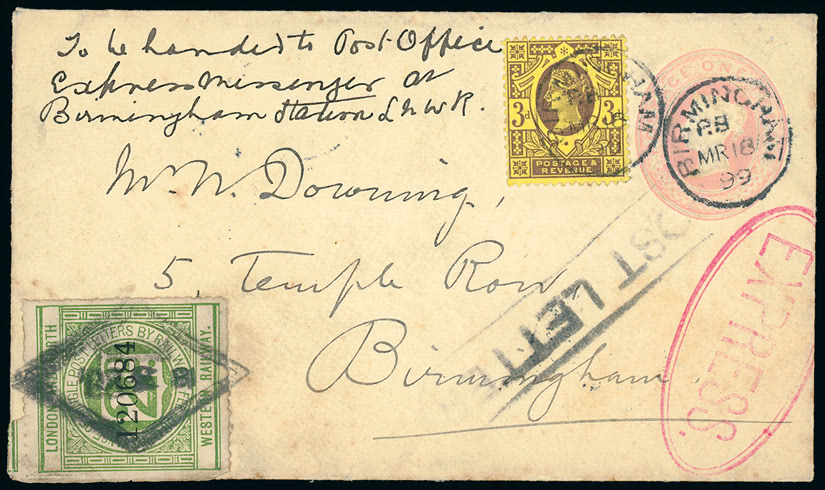 To be handed to Post Office
Express Messenger at
Birmingham Station L N W R.
Mr. W. Downing,
5, Temple Row
Birmingham
3d 3d
POSTAGE &
REVENUE
HAM
BIRMINGHAM
MR 18
99
EXPRESS.
POST LETTE
LONDON NORTH
WESTERN RAILWAY.
POST LETTERS BY RAILWAY
120684